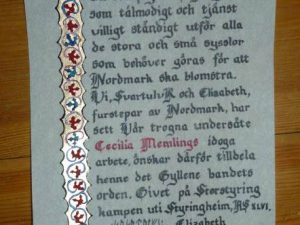 som tålmodigt och tjänst
villigt ständigt utför alla
de stora och små sysslor
som behöver göras för att
Nordmark ska blomstra.
Vi, Svartulv R och Elisabeth,
furstepar av Nordmark, har
sett Vår trogna undersåte
Cecilia Memlings idoga
arbete, önskar därför tilldela
henne det Gyllene bandets
orden. Givet på Storstyring
kampen uti Styringheim, AS XLVI.
Elizabeth